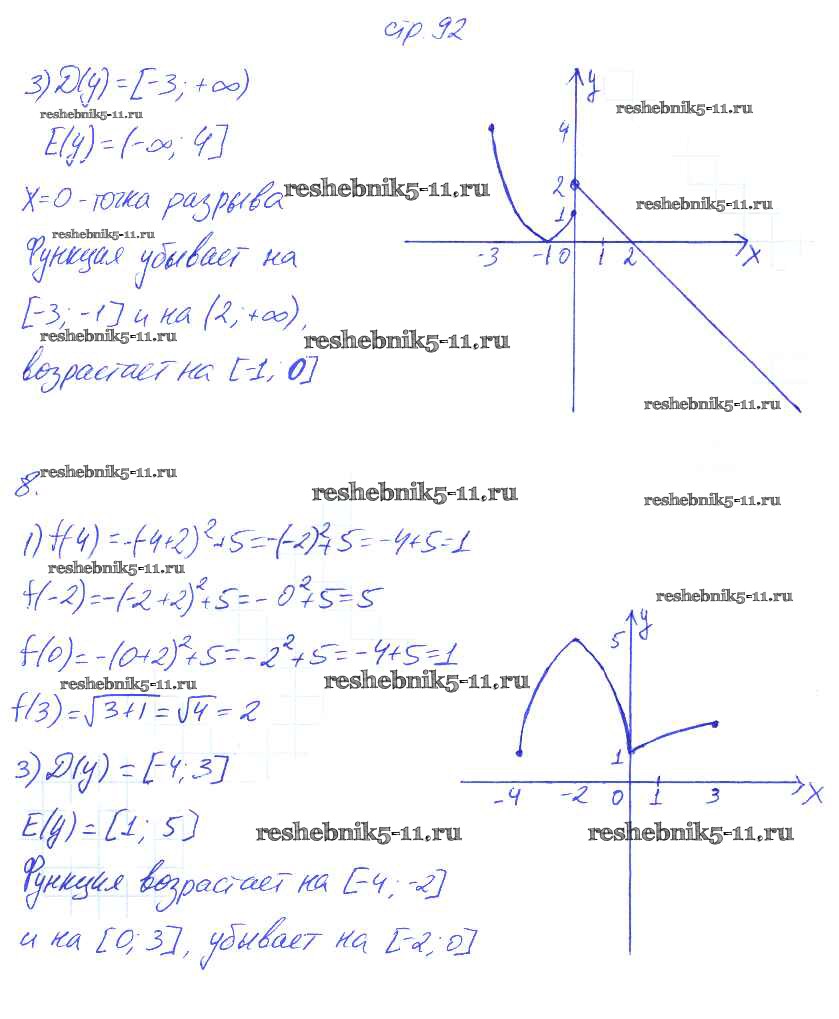 стр. 92
3) D(y) = [-3; +∞)
reshebnik5-11.ru
E(y) = (-∞; 4]
reshebnik5-11.ru
x=0 - точка разрыва
reshebnik5-11.ru
Функция убывает на
[-3; -1] и на (2; +∞),
reshebnik5-11.ru
reshebnik5-11.ru
возрастает на [-1; 0]
y
reshebnik5-11.ru
4
2
reshebnik5-11.ru
1
-3 -1 0 1 2 x
reshebnik5-11.ru
8.
reshebnik5-11.ru
reshebnik5-11.ru
reshebnik5-11.ru
1) f(4) = -(-4+2)²+5=-(-2)²+5=-4+5=1
reshebnik5-11.ru
f(-2)=-(-2+2)²+5=-0²+5=5
f(0)=-(0+2)²+5=-2²+5=-4+5=1
reshebnik5-11.ru
reshebnik5-11.ru
f(3)=√3+1=√4=2
3) D(y) = [-4; 3]
E(y) = [1; 5]
reshebnik5-11.ru
Функция возрастает на [-4; -2]
и на [0; 3], убывает на [-2; 0]
reshebnik5-11.ru
y
5
1
-4 -2 0 1 3 x
reshebnik5-11.ru